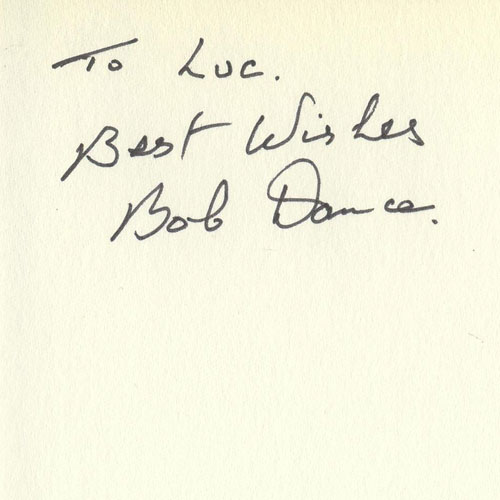 To Luc.
Best Wishes
Bob Dance.